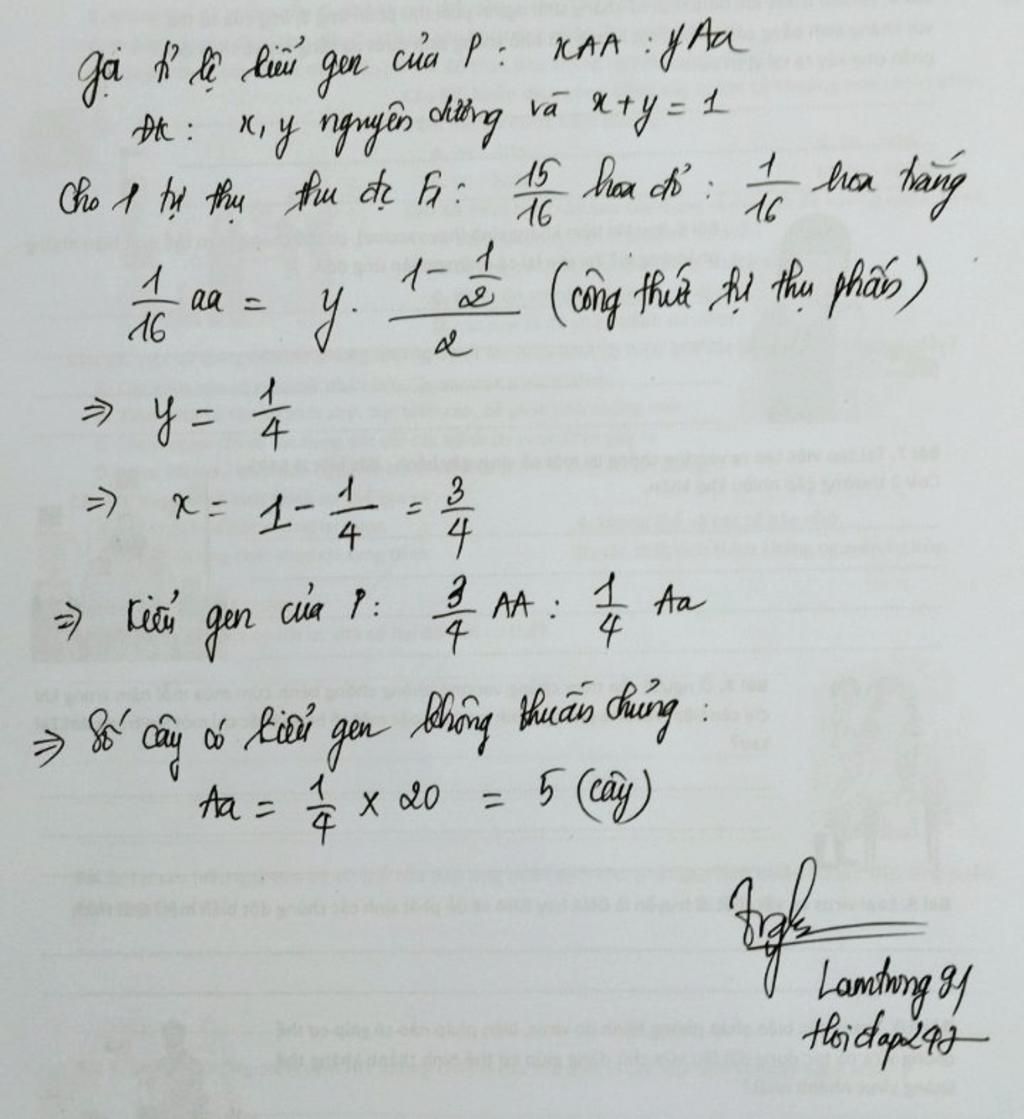 Gọi tỉ lệ kiểu gen của P: xAA : yAa
ĐK: x, y nguyên dương và x + y = 1
Cho P tự thụ thu đc F1: 15/16 hoa đỏ : 1/16 hoa trắng
1/16 aa = y. (1 - 1/2)/2 (công thức tự thụ phấn)
=> y = 1/4
=> x = 1 - 1/4 = 3/4
=> Kiểu gen của P: 3/4 AA : 1/4 Aa
=> Số cây có kiểu gen không thuần chủng:
Aa = 1/4 x 20 = 5 (cây)
Lamtrung91
Hoidap247